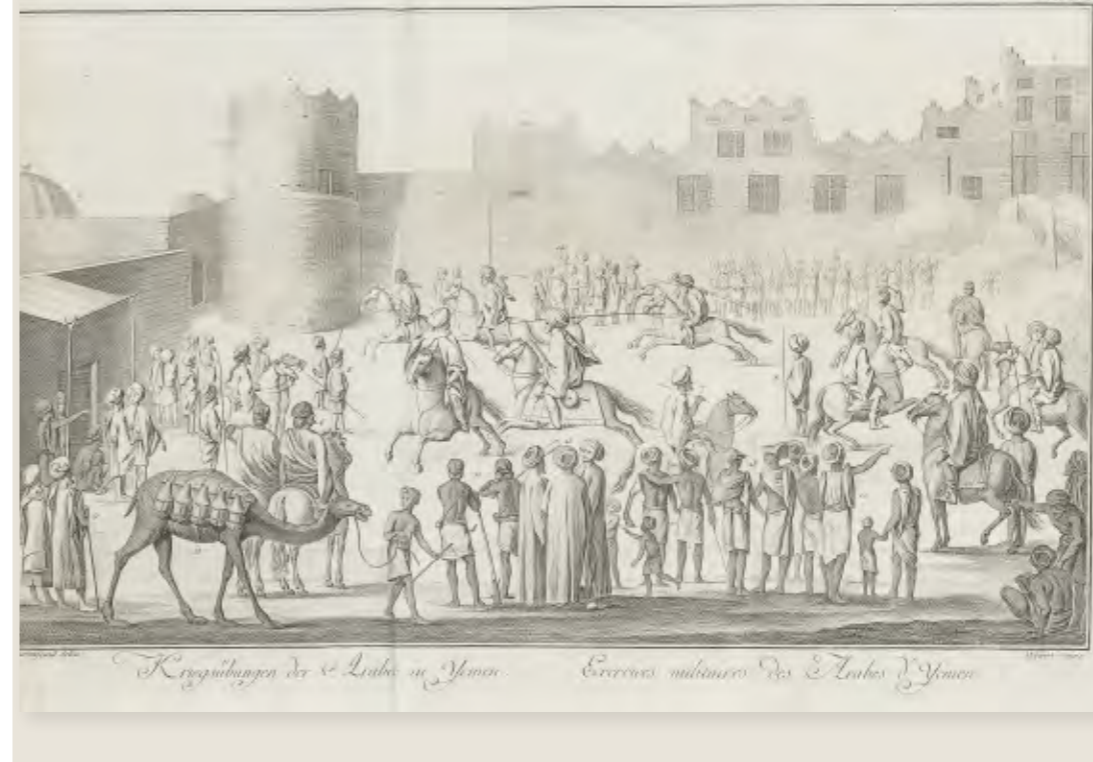 Kriegsübungen der Araber in Yemen.
Exercices militaires des Arabes d'Yemen.